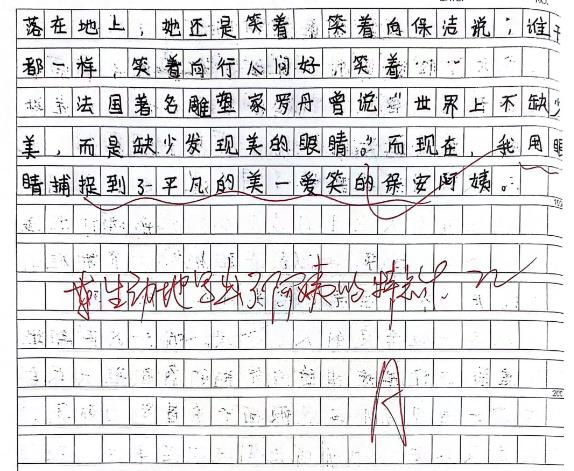 落在地上，她还是笑着，笑着向保洁说；谁干
都一样，笑着向行人问好，笑着
法国著名雕塑家罗丹曾说“世界上不缺少
美，而是缺少发现美的眼睛。”而现在，我用眼
睛捕捉到了平凡的美一爱笑的保安阿姨。
生动地写出了阿姨的特点！
A